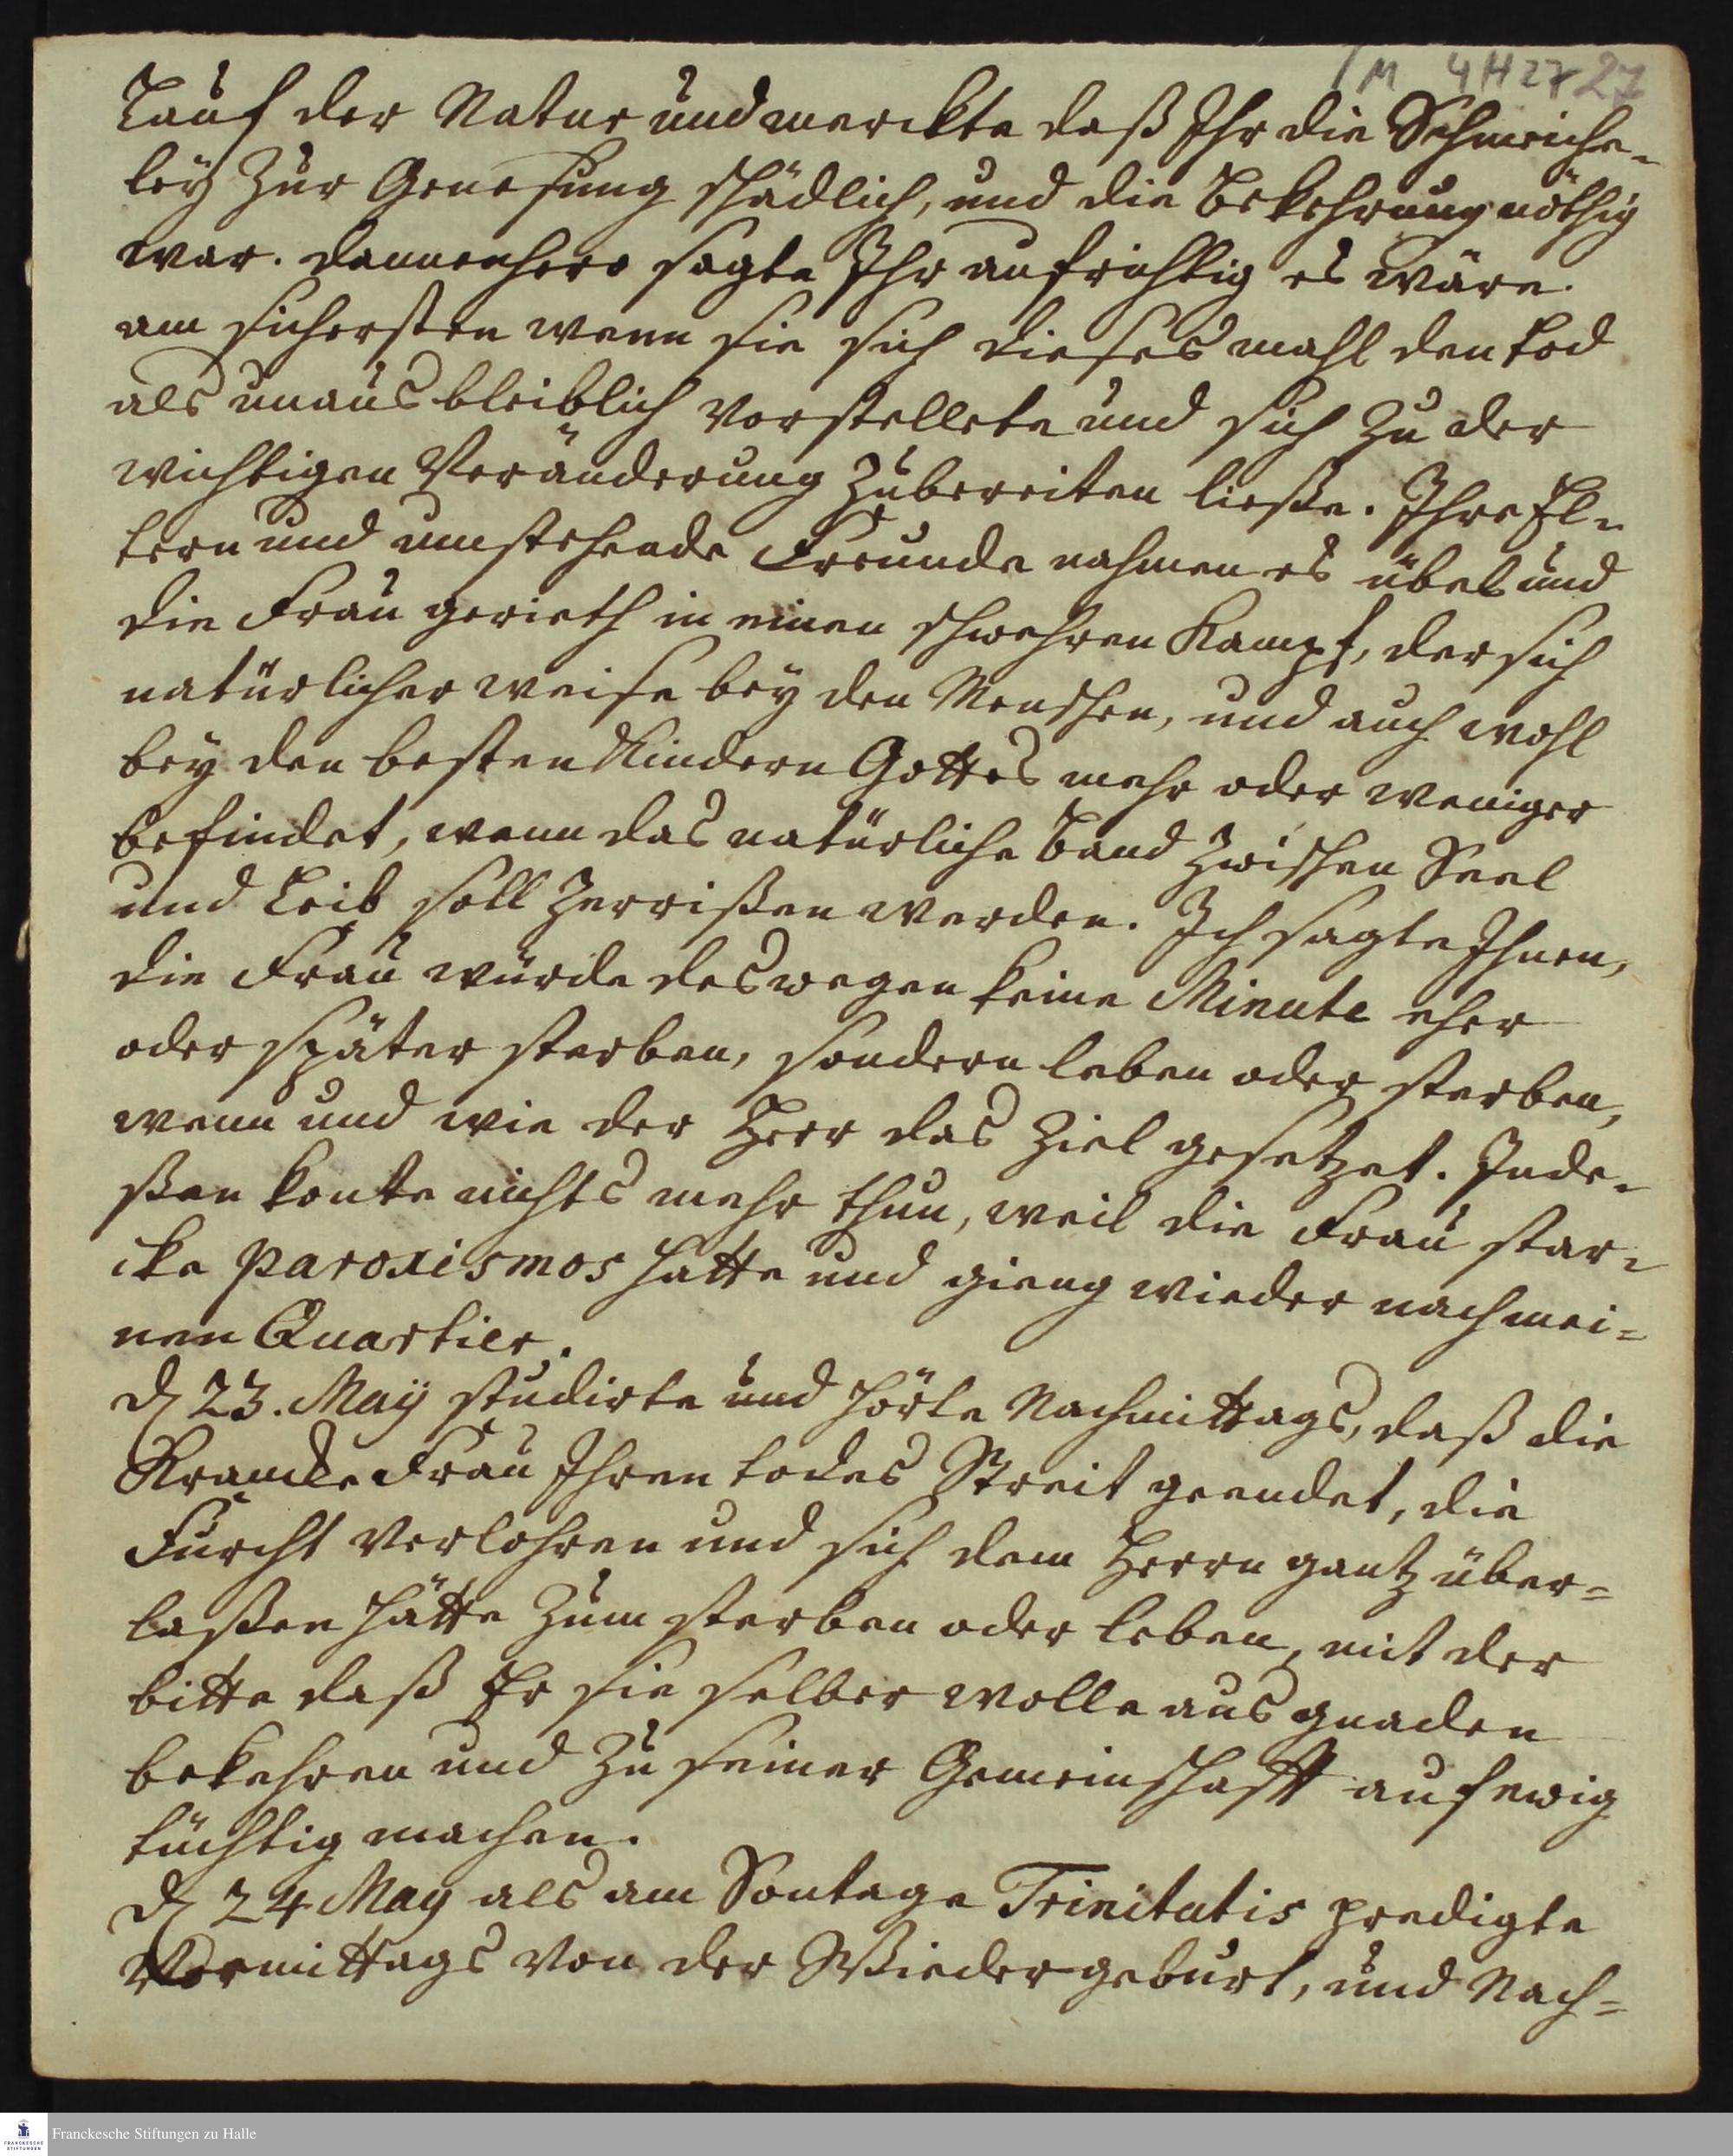 M 4H27 27
Lauf der Natur und merckte daß Ihr die Schmeiche-
ley zur Genesung schädlich, und die Bekehrung nöthig
war. dannenhero sagte Ihr aufrichtig es wäre
am sichersten wenn sie sich dieses mahl den tod
als unausbleiblich vorstellete und sich zu der
wichtigen Veränderung zubereiten ließe. Ihre El-
tern und umstehende Freunde nahmen es übel und
die Frau gerieth in einen schwehren Kampf, der sich
natürlicher weise bey den Menschen, und auch wohl
bey den besten Kindern Gottes mehr oder weniger
befindet, wenn das natürliche Band zwischen Seel
und Leib soll zerrißen werden. Ich sagte Ihnen,
die Frau würde deswegen keine Minute eher
oder später sterben, sondern leben oder sterben,
wenn und wie der Herr das Ziel gesetzet. Inde-
ßen konte nichts mehr thun, weil die Frau star-
cke paroxismos hatte und gieng wieder nach mei-
nen Quartier.
d 23. May studirte und hörte Nachmittags, daß die
Krancke Frau Ihren todes Streit geendet, die
Furcht verlohren und sich dem Herrn gantz über-
laßen hätte zum sterben oder leben, mit der
bitte daß Er sie selber wolle aus gnaden
bekehren und zu seiner Gemeinschafft auf ewig
tüchtig machen.
d 24 May als am Sontage Trinitatis predigte
Vormittags von der Wiedergeburt, und Nach-
Franckesche Stiftungen zu Halle
FRANCKESCHE
STIFTUNGEN